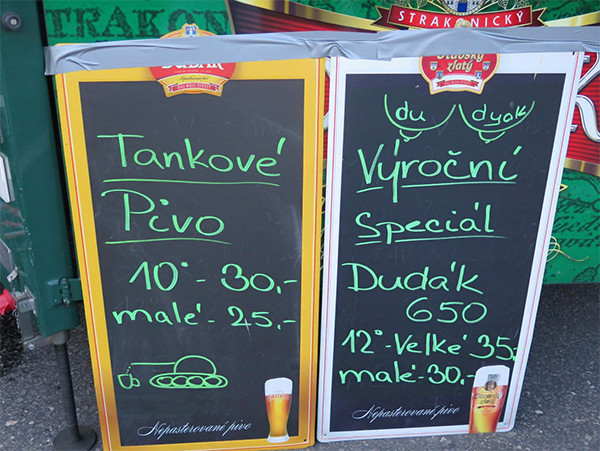 STRAKON
STRAKONICKÝ
DUDÁK
Otavský
zlatý
du dyak
Tankové
Pivo
10° - 30,-
malé - 25,-
Nepasterované pivo
Výroční
Speciál
Dudák
650
12° - Velké 35,-
malé - 30,-
Nepasterované pivo